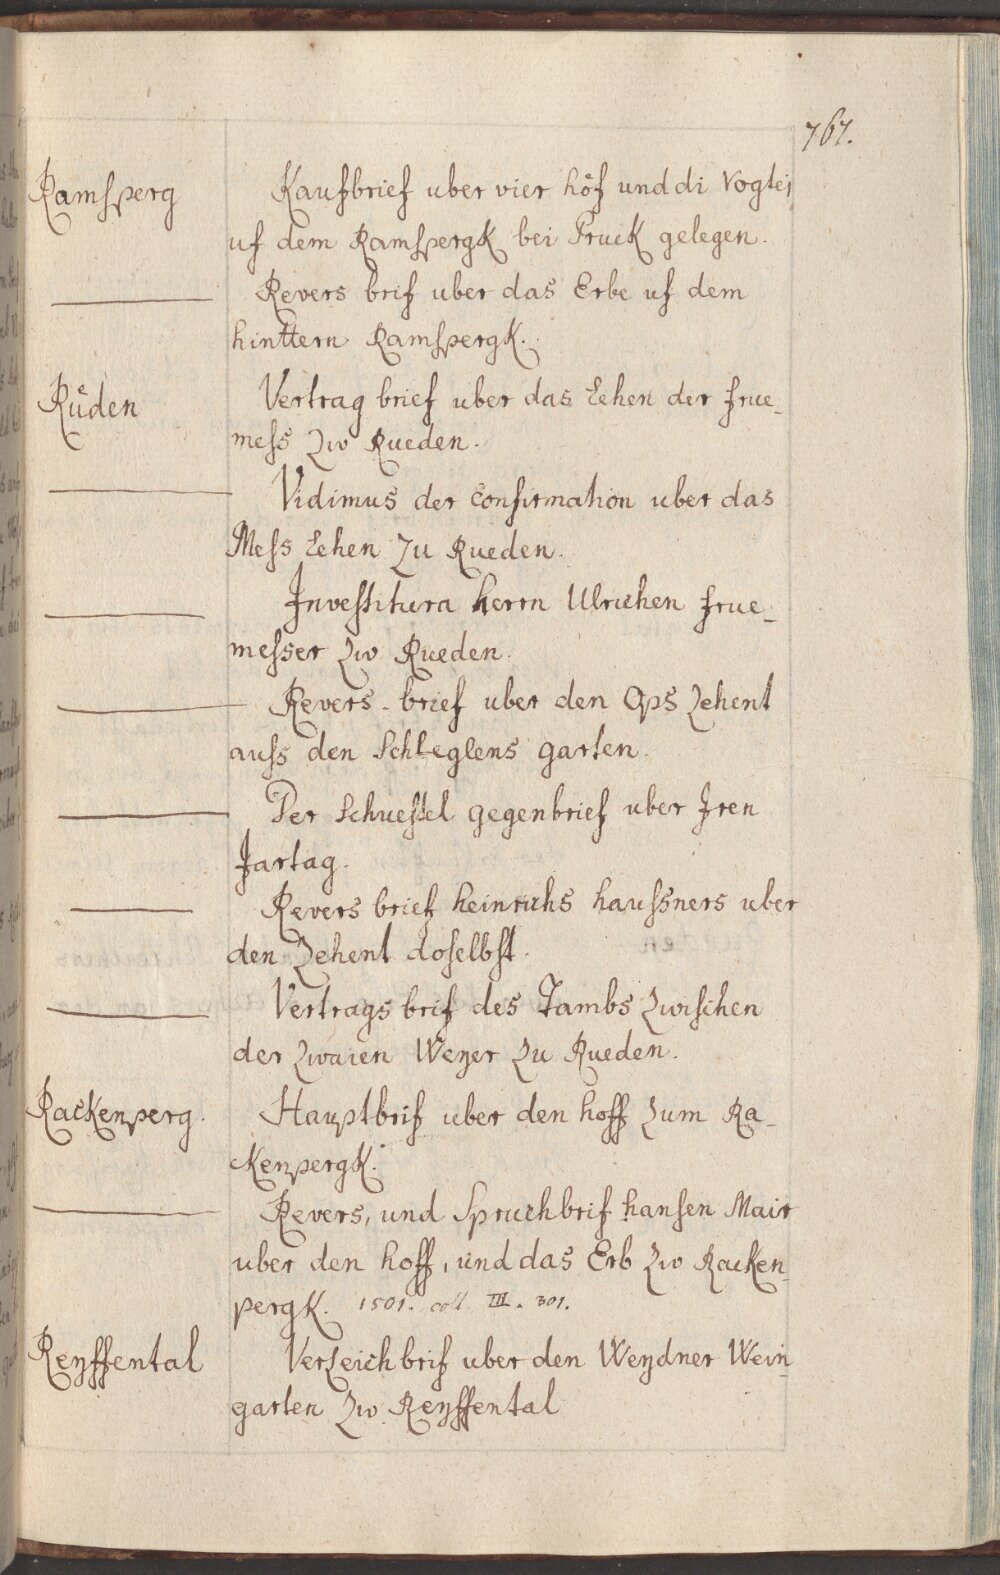 767.
Ramsperg Kaufbrief uber vier höf und di Vogtei
uf dem Ramspergk bei Pruck gelegen.
Revers brif uber das Erbe uf dem
hinttern Ramspergk.
Rüden Vertrag brief uber das Lehen der frue-
mess Zw Rueden.
Vidimus der Confirmation uber das
Mess Lehen Zu Rueden.
Investitura Herrn Ulrichen frue-
messer Zw Rueden.
Revers-brief uber den Ops Zehent
auss den Schleglens garten.
Per Schuessel gegenbrief uber Iren
Jartag.
Revers brief Heinrichs Haussners uber
den Zehent doselbst.
Vertrags brif des Tambs Zwischen
der Zwaien Weyer Zu Rueden.
Rackenperg. Hauptbrif uber den hoff Zum Ra-
ckenpergk.
Revers, und Spruchbrif hansen Mair
uber den hoff, und das Erb Zw Racken-
pergk. 1501. coll. III. 301.
Reyffental Verzeichbrif uber den Weydner Wein-
garten Zw Reyffental